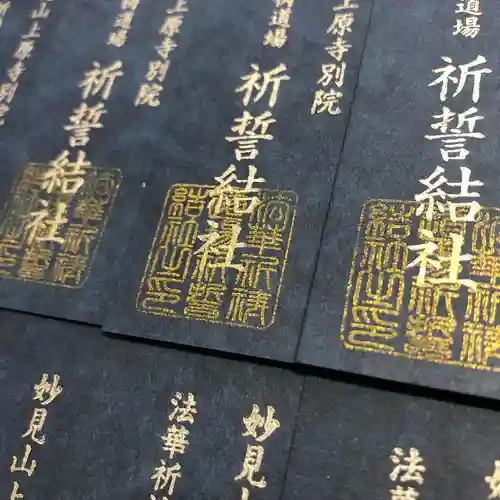 道場
祈誓結社
上原寺別院
道場
祈誓結社
上原寺別院
道場
祈誓結社
山上原寺別院
法華
妙見山
法華祈
妙見山上